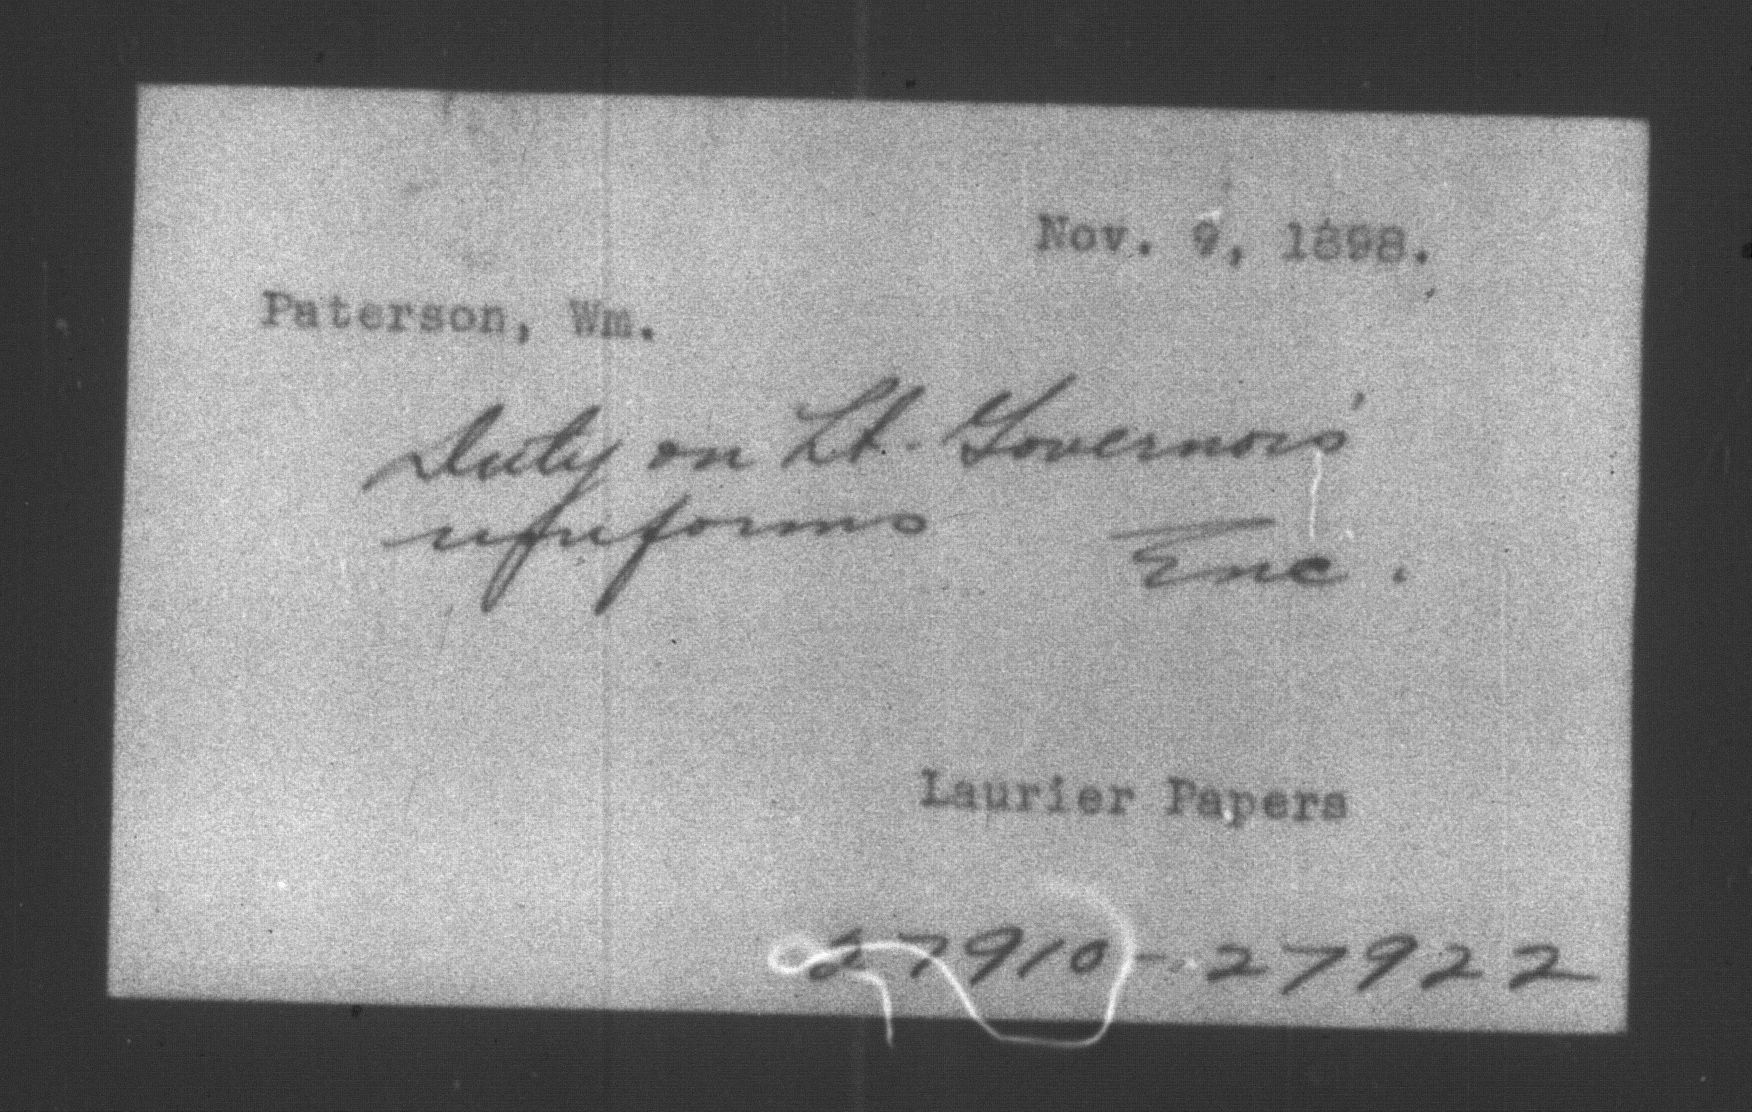 Nov. 9, 1898.
Paterson, Wm.
Duty on Lt. Governors'
uniforms Enc.
Laurier Papers
27910-27922